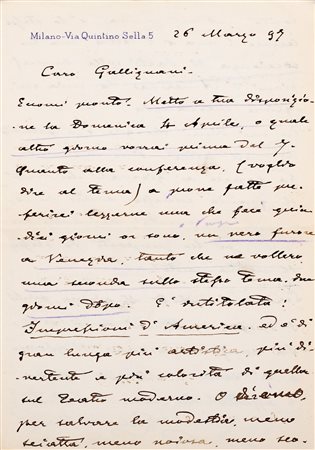 Milano - Via Quintino Sella 5 26 Marzo 97
Caro Gallignani -
Eccomi pronto! Metto a tua disposizio-
ne la Domenica 4 Aprile, o quale
altro giorno vorrai prima del 7.
Quanto alla conferenza, (voglio
dire al tema) a pone fatto pre-
ferirei leggerne una che feci quin-
dici giorni or sono, un vero furore
a Venezia, tanto che ne vollero
una seconda sullo stesso tema, due
giorni dopo. È intitolata:
Impressioni d'America, ed è di
gran lunga più artistica, più di-
vertente e più colorita di quella
sul Teatro moderno. O diciamo,
per salvare la modestia, meno
seccatta, meno noiosa, meno sco-